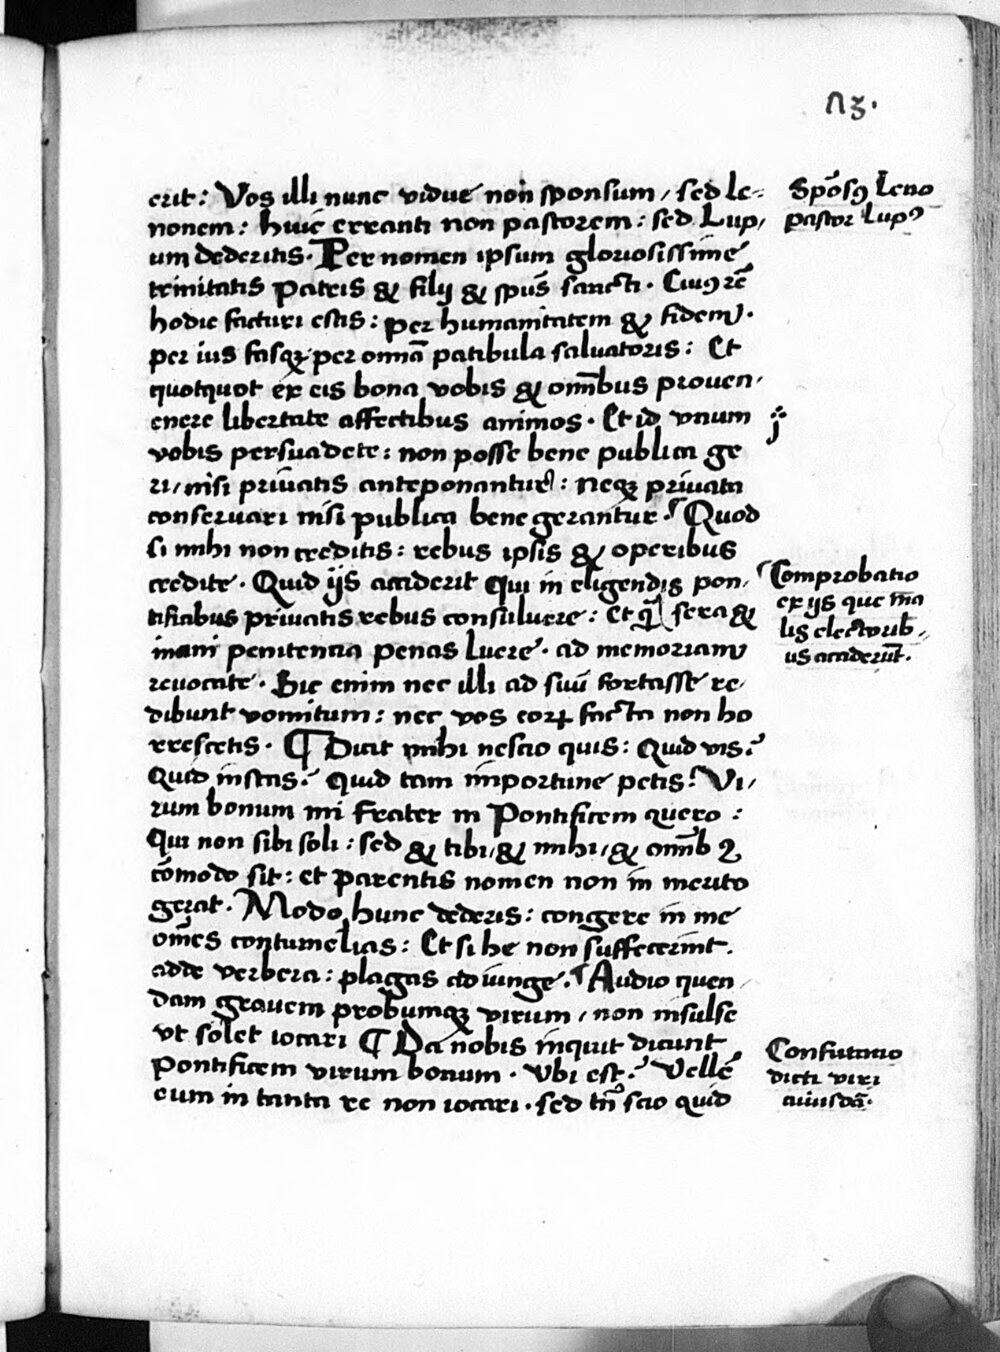 Λ3.
erit: Vos illi nunc vidue non sponsum / sed le-
nonem: huic erranti non pastorem: sed Lup/
um dederitis. Per nomen ipsum gloriosissime
trinitatis patris & filij & spūs sancti. Cuiꝯ rē
hodie facturi estis: per humanitatem & fidem.
per ius fasqꝫ per omnā patibula saluatoris: Et
quotquot ex eis bona vobis & omībus prouen/
enere libertate affectibus animos. Et id vnum
vobis persuadete: non posse bene publica ge
ri / nisi priuatis anteponantur: neqꝫ priuata
conseruari nisi publica bene gerantur. Quod
si mihi non creditis: rebus ipsis & operibus
credite. Quid ijs acciderit Qui in eligendis pon/
tificibus priuatis rebus consuluere: et sera &
inani penitentia penas luere. ad memoriam
reuocate. Sic enim nec illi ad suū fortasse re/
dibunt vomitum: nec vos eoꝝ facta non ho
rrescetis. ¶ Dicit mihi nescio quis: Quid vis?
Quid instas? Quid tam importune petis? Vi/
rum bonum mi frater in Pontificem quero:
Qui non sibi soli: sed & tibi / & mihi / & omībꝫ
cōmodo sit: et parentis nomen non in merito
gerat. Modo hunc dederis: congere in me
omēs contumelias: Et si he non suffecerint.
adde verbera: plagas adiunge. Audio quen/
dam grauem probumqꝫ virum / non insulse
vt solet iocari ¶ Da nobis inquit dicunt
Pontificem virum bonum. Vbi est? Vellē
eum in tanta re non iocari. sed tn̄ scio quid
Spōsꝯ Leno
pastor Lupꝯ
Comprobatio
ex ijs que ma
lis electorib/
us acciderūt.
Confutatio
dicti viri
cuiusdā.